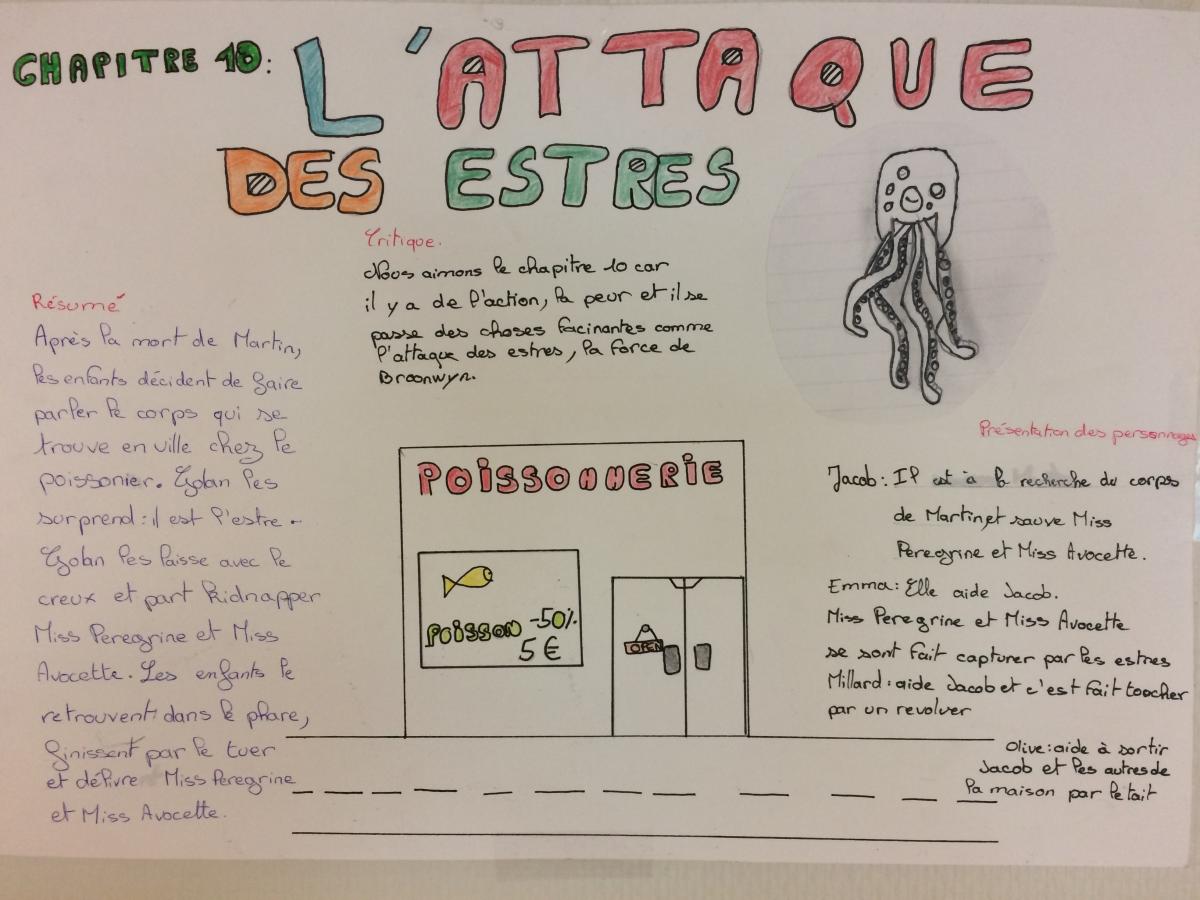 CHAPITRE 10:
L'ATTAQUE
DES ESTRES
Critique.
Nous aimons le chapitre 10 car
il y a de l'action, la peur et il se
passe des choses facinantes comme
l'attaque des estres, la force de
Broonwyn.
Résumé
Après la mort de Martin,
les enfants décident de faire
parler le corps qui se
trouve en ville chez le
poissonier. Golan les
surprend : il est l'estre.
Golan les laisse avec le
creux et part kidnapper
Miss Peregrine et Miss
Avocette. Les enfants le
retrouvent dans le phare,
finissent par le tuer
et délivre Miss Peregrine
et Miss Avocette.
POISSONNERIE
POISSON -50%
5 €
OPEN
Présentation des personnages
Jacob : Il est à la recherche du corps
de Martin, et sauve Miss
Peregrine et Miss Avocette.
Emma : Elle aide Jacob.
Miss Peregrine et Miss Avocette
se sont fait capturer par les estres
Millard : aide Jacob et c'est fait toucher
par un revolver
Olive : aide à sortir
Jacob et les autres de
la maison par le tait